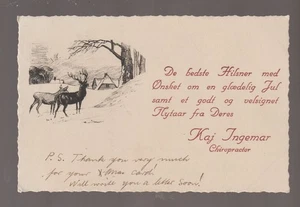 De bedste Hilsner med
Ønsket om en glædelig Jul
samt et godt og velsignet
Nytaar fra Deres
Kaj Ingemar
Chiropractor
P.S. Thank you very much
for your Xmas card.
Will write you a letter soon!